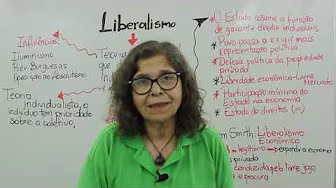 Liberalismo
Influências
Iluminismo
Rev. Burguesas
Oposição ao Absolutismo
Teoria
individualista, o
indivíduo tem prioridade
sobre o coletivo.
Teoria
que
* O Estado assume a função
de garantir direitos individuais
* Povo passa a exigir mais
representação política
* Defesa política da propriedade
privada
* Liberdade econômica - Livre
mercado
* Participação mínima do
Estado na economia
* Estado de direitos (=)
Smith: Liberalismo
Econômico
legítimo
expandir a economia
privado
conduzida pelo livre jogo
e procura